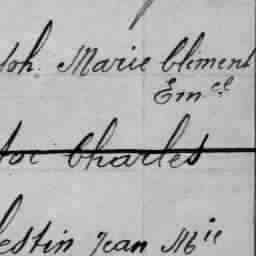 toh. Marie Clément
Em^el
tor Charles
lestin Jean M^ie